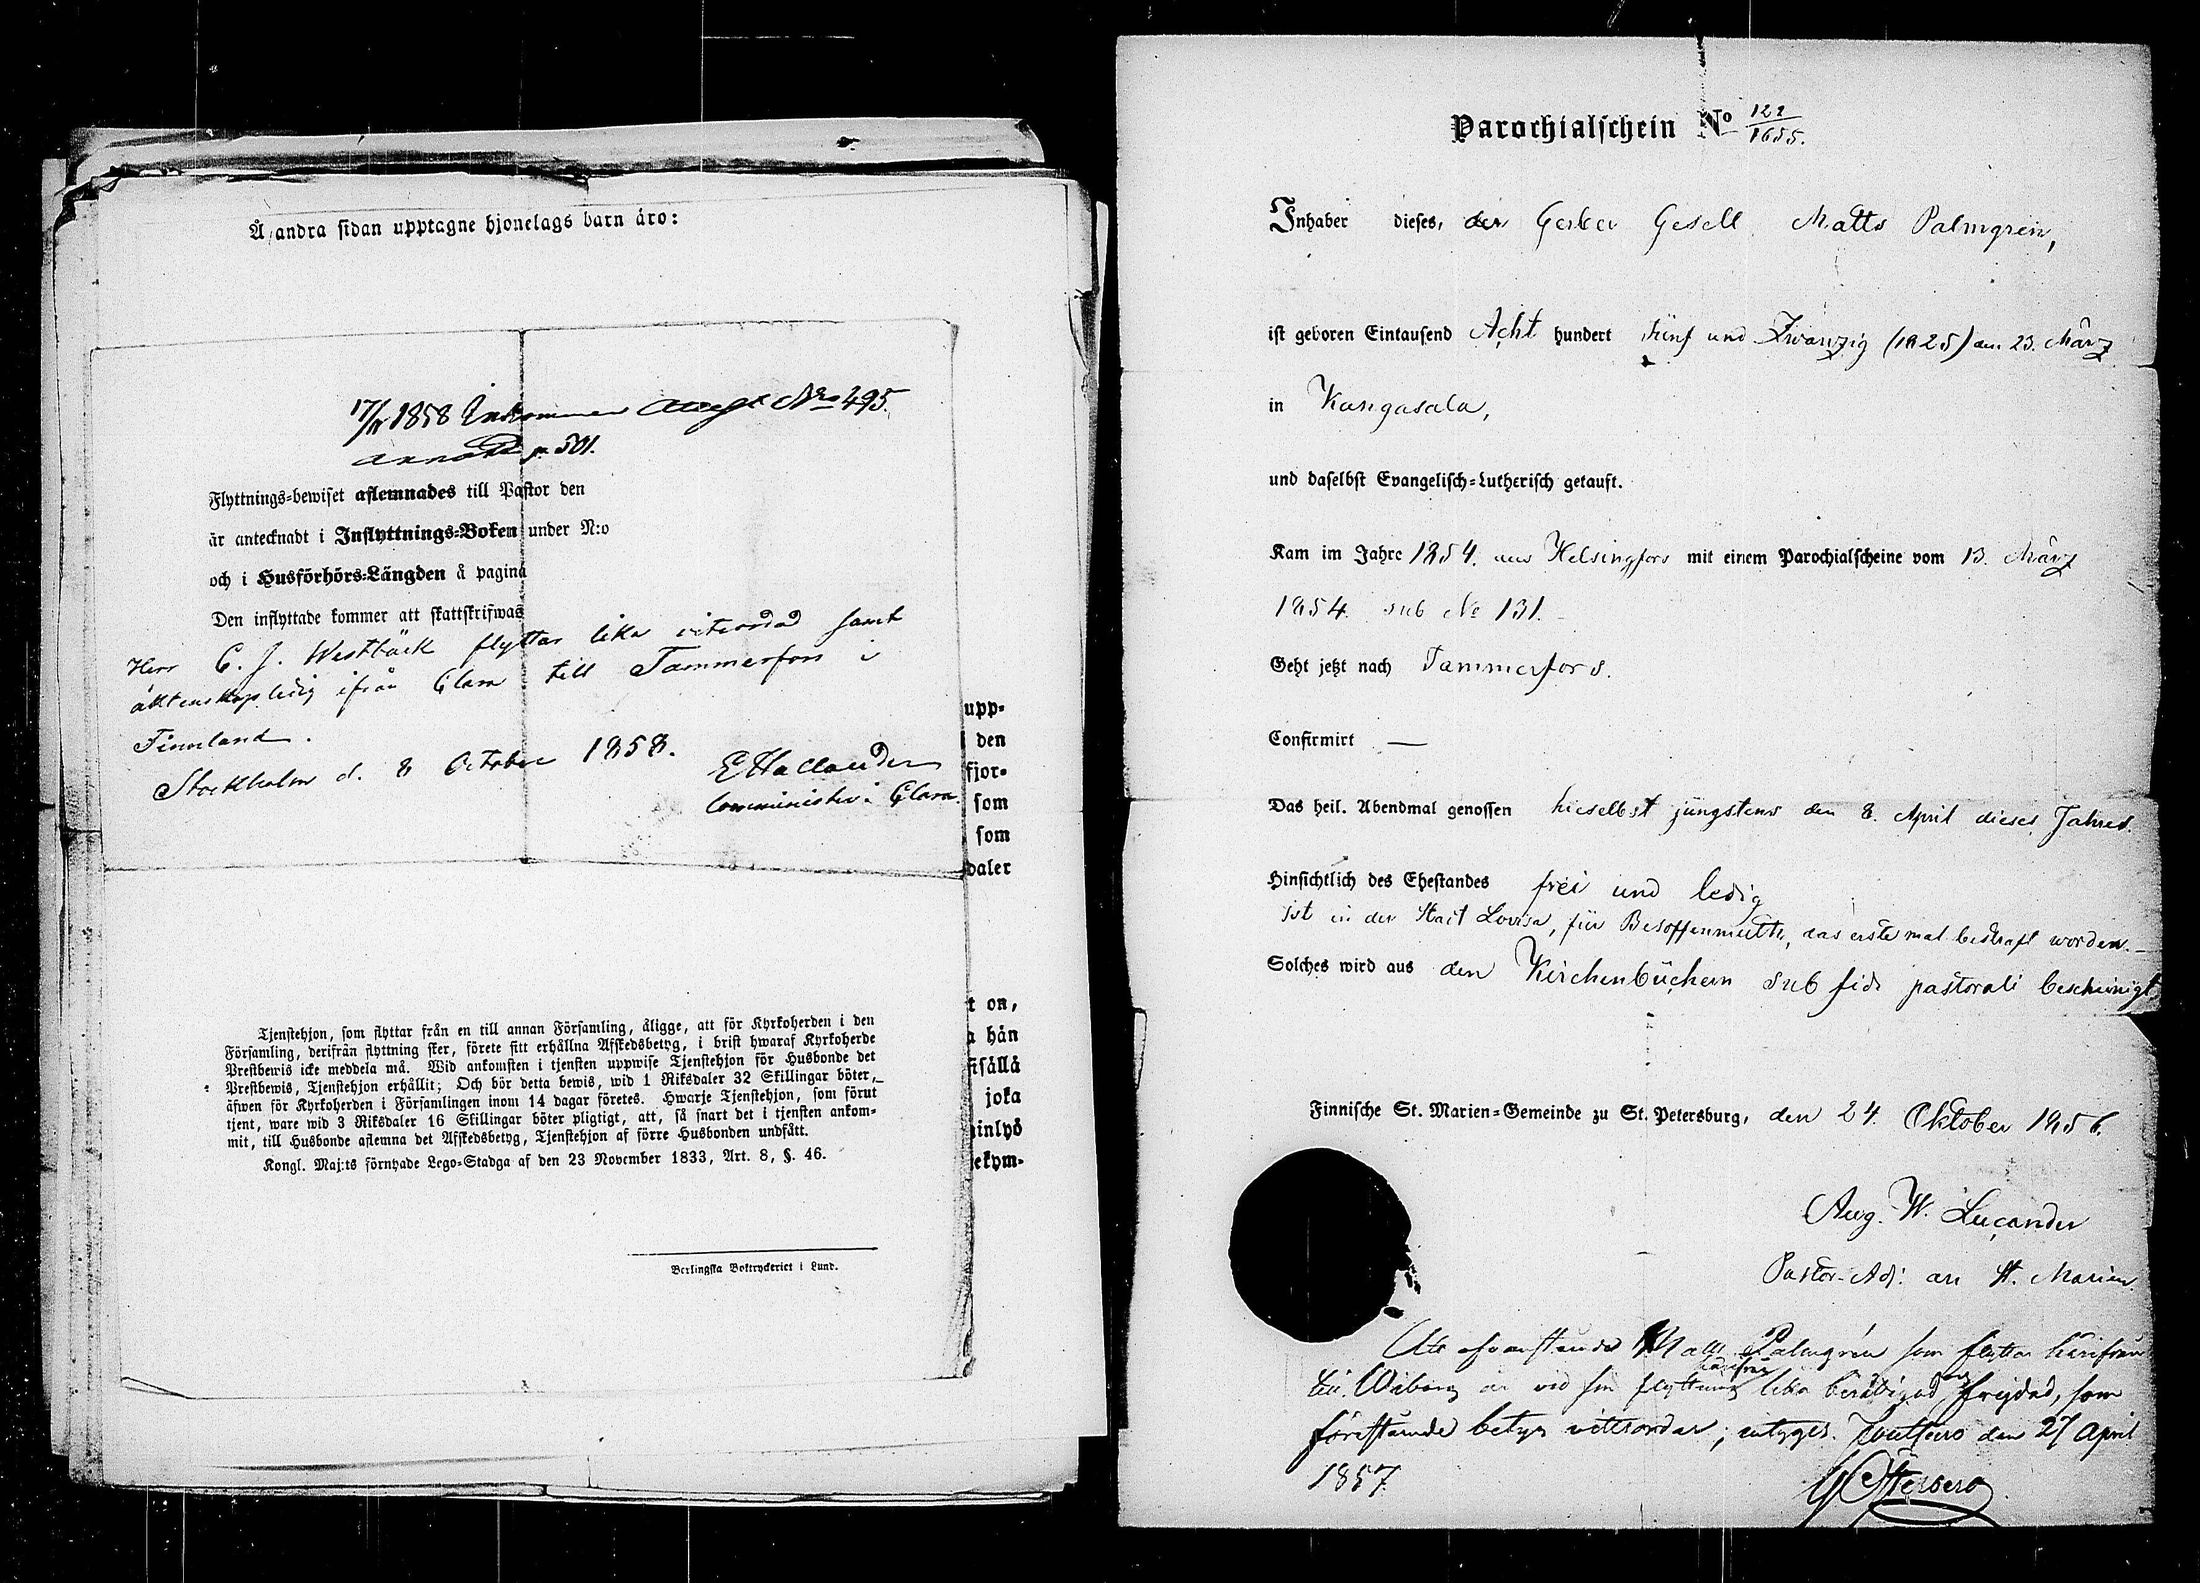 Å andra sidan upptagne hjonelags barn äro:
17/11 1858 Inkommen No 495.
p. 501.
Flyttnings-bewiset aflemnades till Pastor den
är antecknadt i Inflyttnings-Boken under N:o
och i Husförhörs-Längden å pagina
Den inflyttade kommer att skattskrifwas
Herr C. J. Westbäck flyttar lika vitsordad samt
äktenskapsledig ifrån Clara till Tammerfors i
Finnland.
Stockholm d. 8 October 1858.
E Hallander
Comminister i Clara.
upp-
den
fjor-
som
som
daler
t on,
a hän
fisällä
joka
inlyö
ekym-
Tjenstehjon, som flyttar från en till annan Församling, åligge, att för Kyrkoherden i den
Församling, derifrån flyttning sker, förete sitt erhållna Afskedsbetyg, i brist hwaraf Kyrkoherde
Prestbewis icke meddela må. Wid ankomsten i tjensten uppwise Tjenstehjon för Husbonde det
Prestbewis, Tjenstehjon erhållit; Och bör detta bewis, wid 1 Riksdaler 32 Skillingar böter,
äfwen för Kyrkoherden i Församlingen inom 14 dagar företes. Hwarje Tjenstehjon, som förut
tjent, ware wid 3 Riksdaler 16 Skillingar böter pligtigt, att, så snart det i tjensten ankom-
mit, till Husbonde aflemna det Afskedsbetyg, Tjenstehjon af förre Husbonden undfått.
Kongl. Maj:ts förnyade Lego-Stadga af den 23 November 1833, Art. 8, §. 46.
Berlingska Boktryckeriet i Lund.
Parochialschein No 122/1655.
Inhaber dieses, der Gerber Gesell Matts Palmgren,
ist geboren Eintausend Acht hundert fünf und Zwanzig (1825) am 23. März
in Kangasala,
und daselbst Evangelisch-Lutherisch getauft.
Kam im Jahre 1854. aus Helsingfors mit einem Parochialscheine vom 13. März
1854. sub No 131.
Geht jetzt nach Tammerfors.
Confirmirt —
Das heil. Abendmal genossen hieselbst jüngstens den 8. April dieses Jahres.
Hinsichtlich des Ehestandes frei und ledig
ist in der Stadt Lovisa, für Besoffenmuth, das erste mal bestraft worden.
Solches wird aus den Kirchenbüchern sub fide pastorali bescheinigt
Finnische St. Marien-Gemeinde zu St. Petersburg, den 24. Oktober 1856.
Aug. W. Lucander
Pastor-Adj. an St. Marien.
Att ofvanstående Matts Palmgrén som flyttar härifrån
till Wiborg är vid sin flyttning härifrån lika berättigad och frejdad, som
förestående betyg vittsordar; intygas. den 27 April
1857